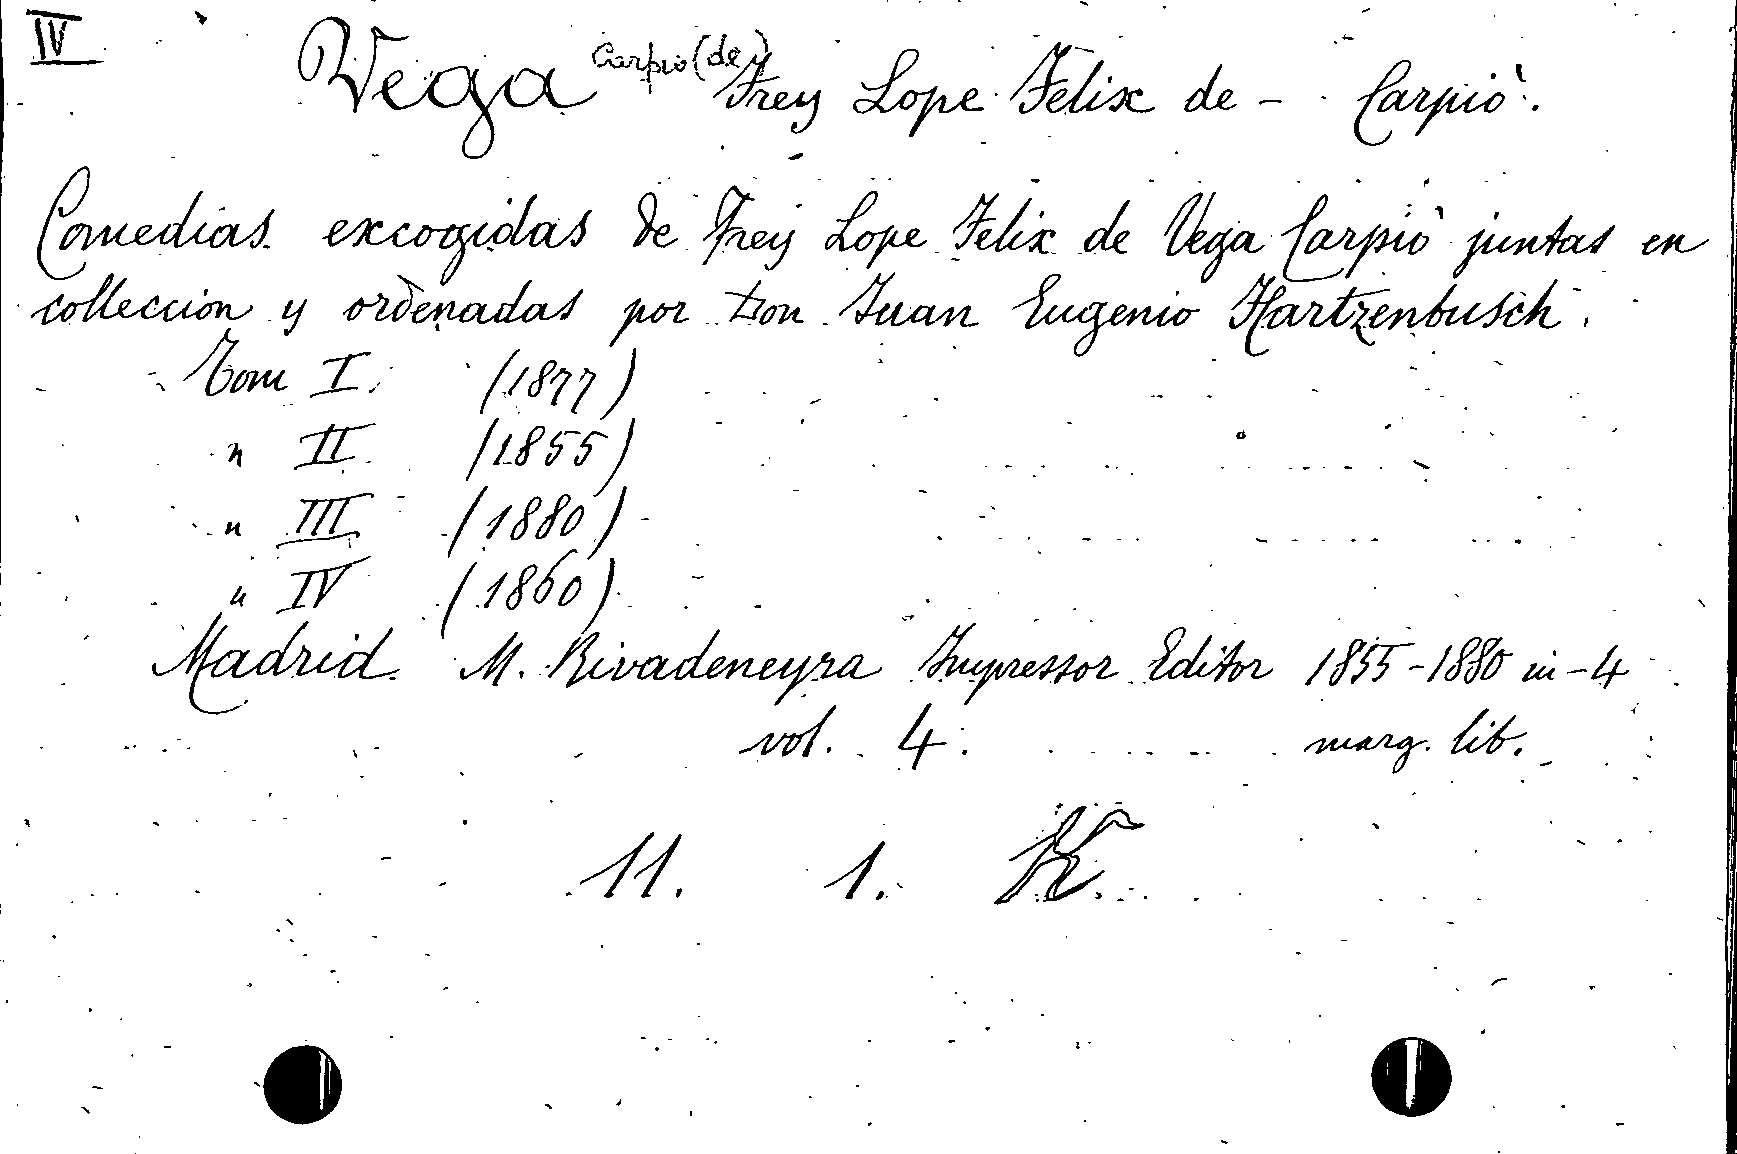 IV
Vega Carpio (de) Frey Lope Felix de - Carpiò.
Comedias excogidas de Frey Lope Felix de Vega Carpiò juntas en
colleccion y ordenadas por Don Juan Eugenio Hartzenbusch.
Tom I. (1877)
" II (1855)
" III (1880)
" IV (1860)
Madrid. M. Rivadeneyra Impressor Editor 1855-1880 in-4
vol. 4. marg. lib.
11. 1. K.